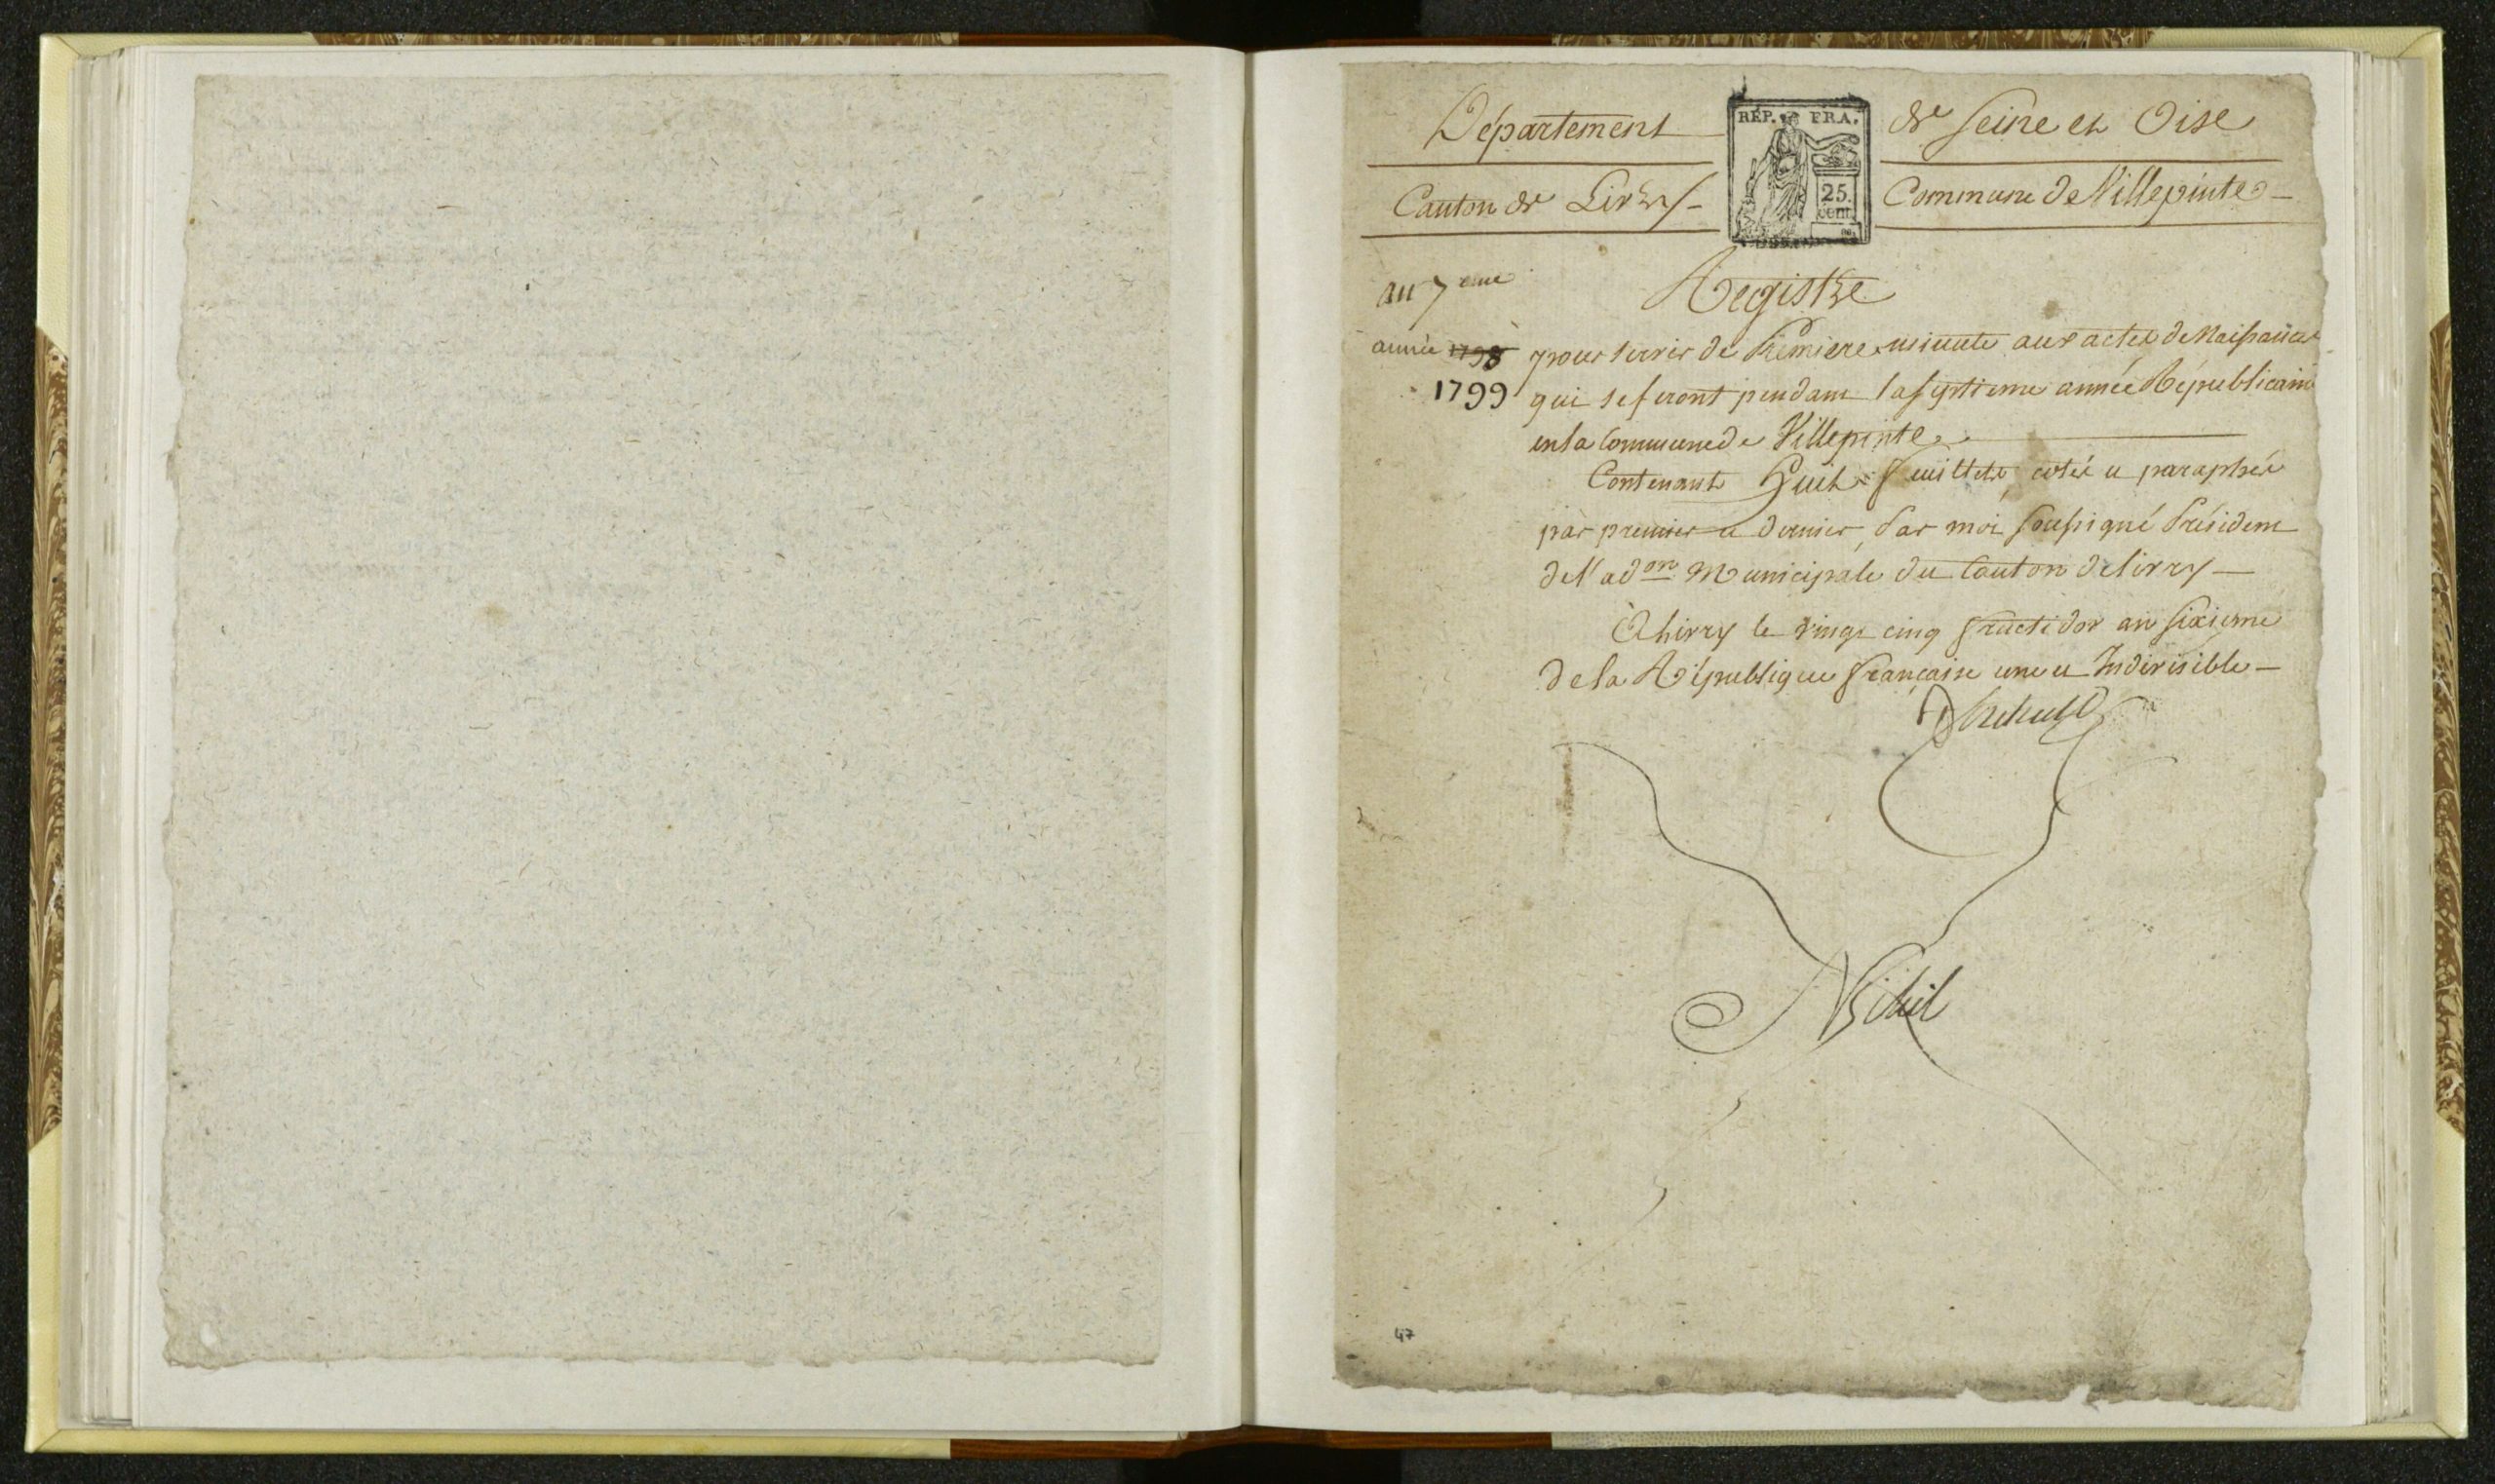 Département de Seine et Oise
RÉP. FRA.
25.
cent.
Canton de Livry Commune de Villepinte
an 7eme Registre
année 1798 pour servir de Premiere minute aux actes de Naissances
1799 qui se feront pendant la septieme année Républicaine
en la Commune de Villepinte
Contenant huit feuillets, cotés et paraphés
par premier et dernier, Par moi soussigné Président
de l'adon Municipale du Canton de Livry
A Livry le vingt cinq fructidor an sixieme
de la République française une et Indivisible
Nihil
47